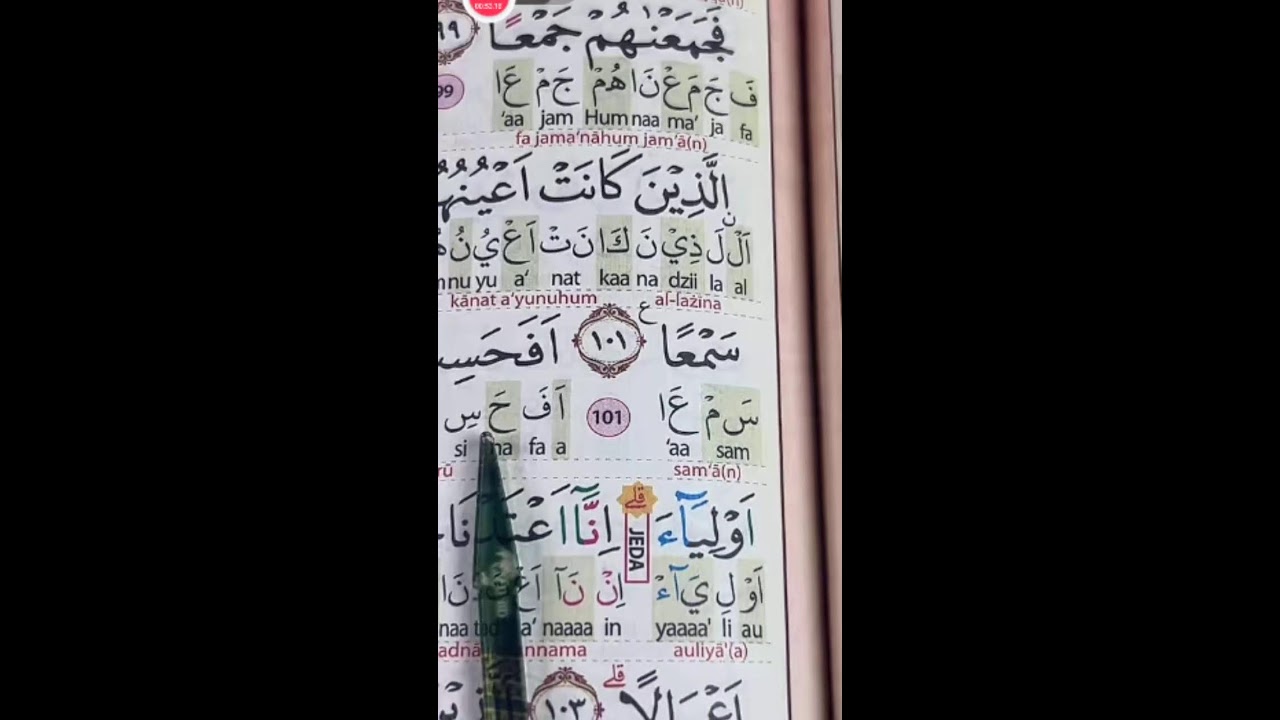 00:52:18
فَجَمَعْنٰهُمْ جَمْعًا ٩٩
فَ جَ مَ عْ نَا هُمْ جَ مْ عَا 99
'aa jam Hum naa ma' ja fa
fa jama'nāhum jam'ā(n)
الَّذِيْنَ كَانَتْ اَعْيُنُهُ
اَلْ لَ ذِيْ نَ كَا نَتْ اَعْ يُ نُ
nu yu a' nat kaa na dzii la al
kānat a'yunuhum al-lażīna
سَمْعًا ١٠١ اَفَحَسِ
سَ مْ عَا 101 اَ فَ حَ سِ
si ha fa a 'aa sam
rū sam'ā(n)
اَوْلِيَاۤءَ ۗ اِنَّآ اَعْتَدْنَا
JEDA
اَوْ لِ يَآءَ اِنْ نَآ اَعْ دْنَا
naa a' naaaa in yaaaa' li au
adnā nnama auliyā'(a)
١٠٣